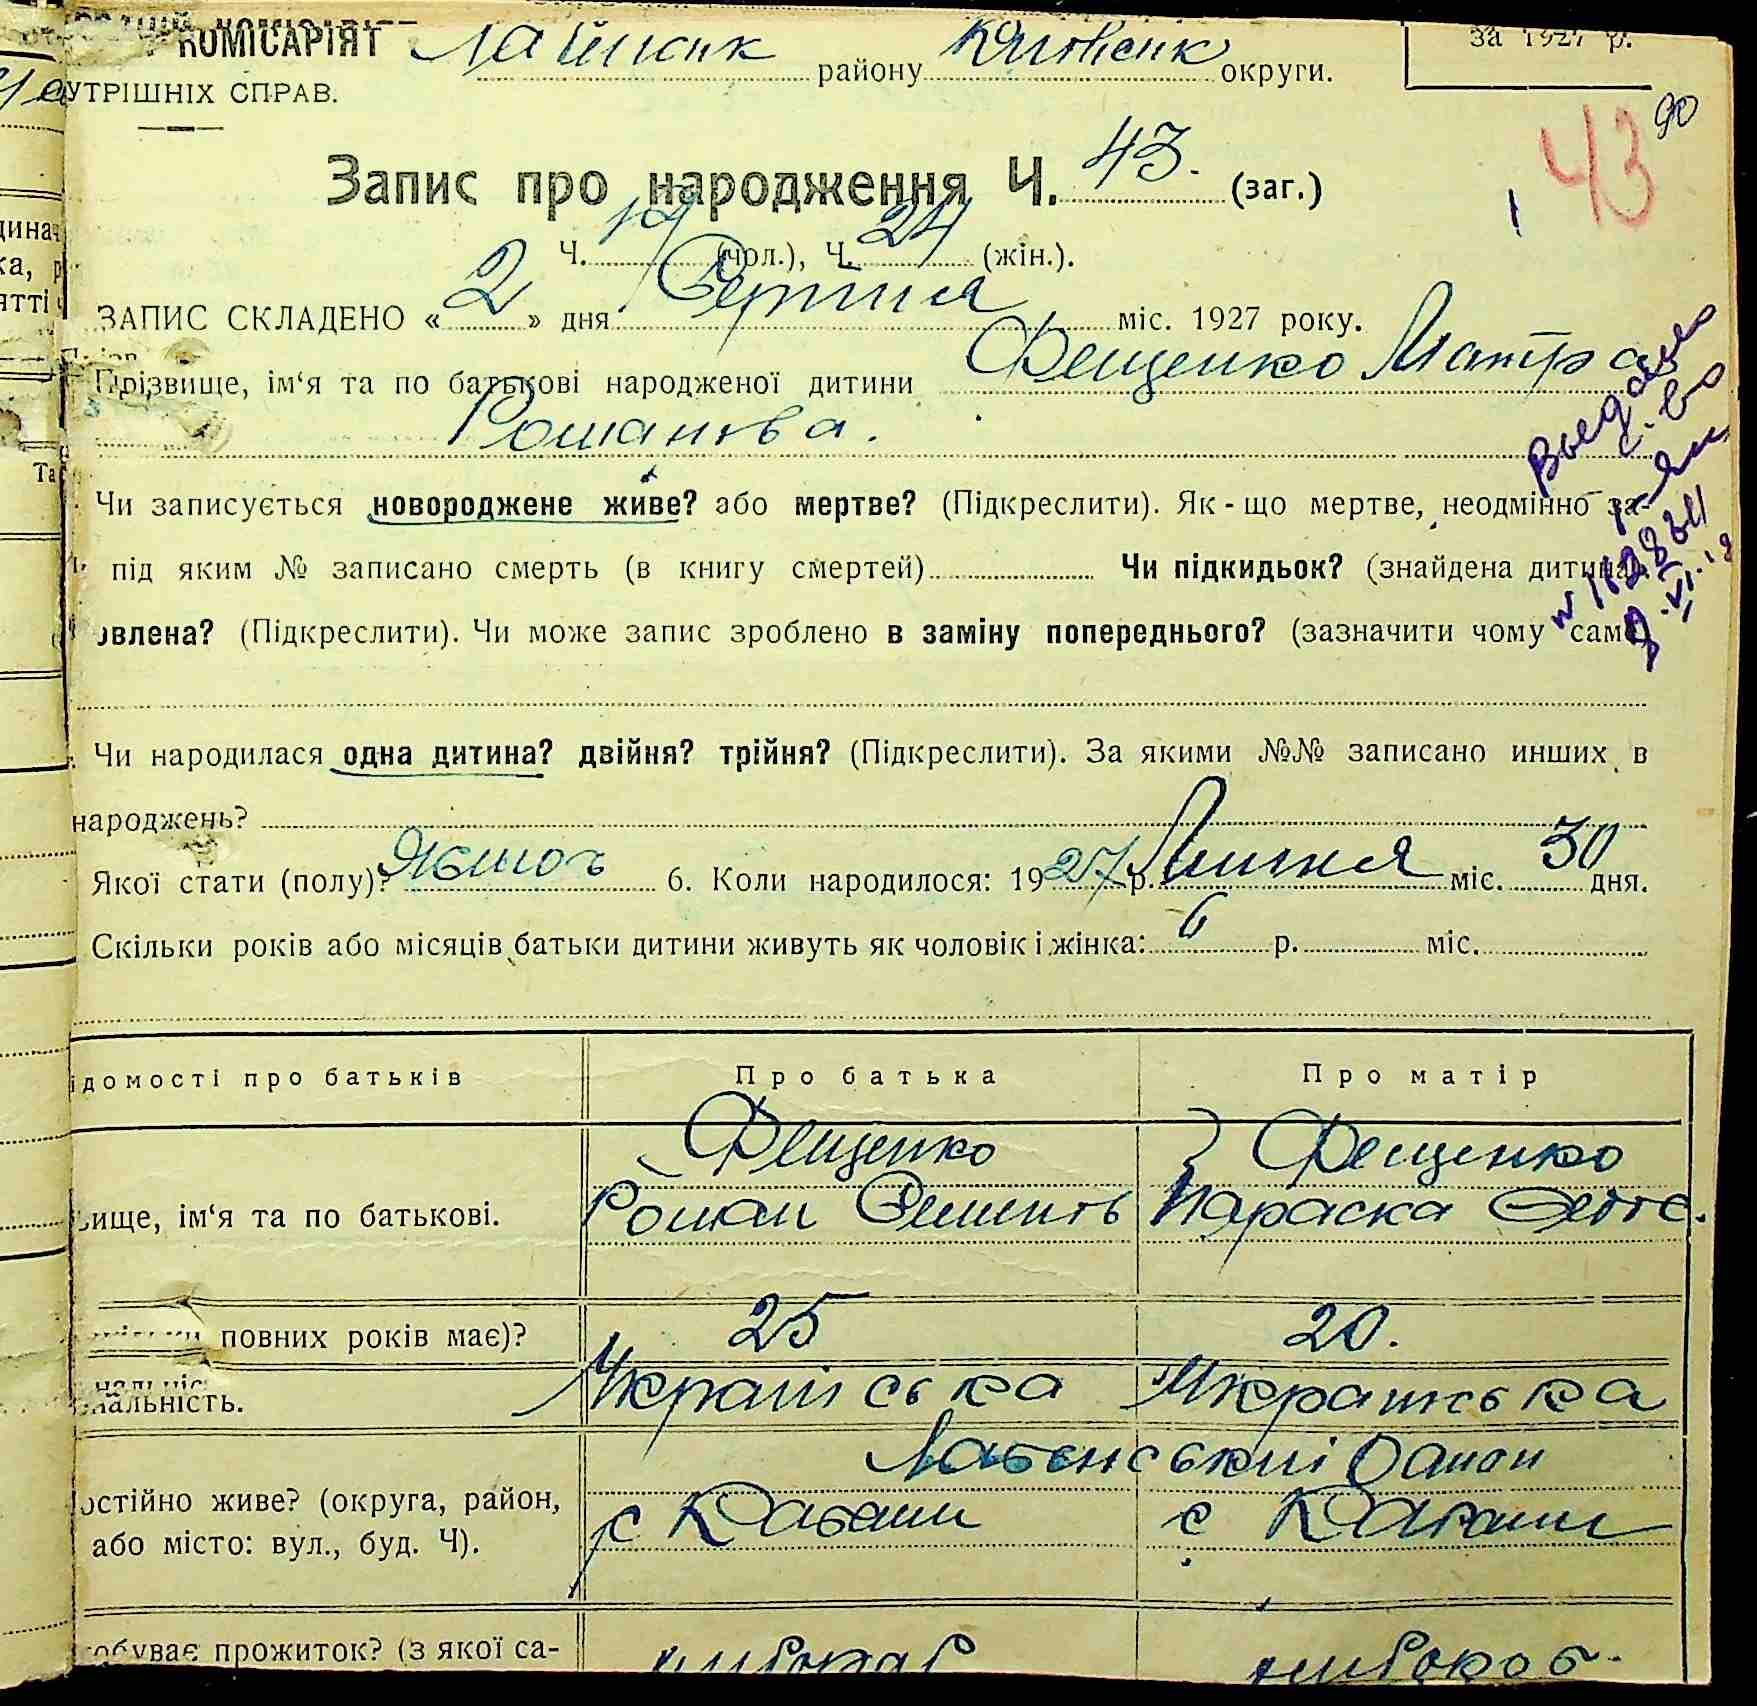 КОМІСАРІЯТ району округи. за 1927 р.
УТРІШНІХ СПРАВ.
90
43
Запис про народження Ч. 43. (заг.)
Ч. 19 (чол.), Ч. 24 (жін.).
ЗАПИС СКЛАДЕНО « 2 » дня Серпня міс. 1927 року.
Прізвище, ім‘я та по батькові народженої дитини Фещенко Мотря
Романова.
Чи записується новороджене живе? або мертве? (Підкреслити). Як - що мертве, неодмінно за-
під яким № записано смерть (в книгу смертей) Чи підкидьок? (знайдена дитина)
овлена? (Підкреслити). Чи може запис зроблено в заміну попереднього? (зазначити чому саме)
Чи народилася одна дитина? двійня? трійня? (Підкреслити). За якими №№ записано инших в
народжень?
Якої стати (полу)? Жіноч 6. Коли народилося: 1927 р. Липня міс. 30 дня.
Скільки років або місяців батьки дитини живуть як чоловік і жінка: 6 р. міс.
ідомості про батьків Про батька Про матір
Фещенко Фещенко
вище, ім‘я та по батькові. Роман Семенов Параска
повних років має)? 25 20.
нальність. Українська Українська
остійно живе? (округа, район, район
або місто: вул., буд. Ч). с с
обуває прожиток? (з якої са- хлібороб хлібороб.